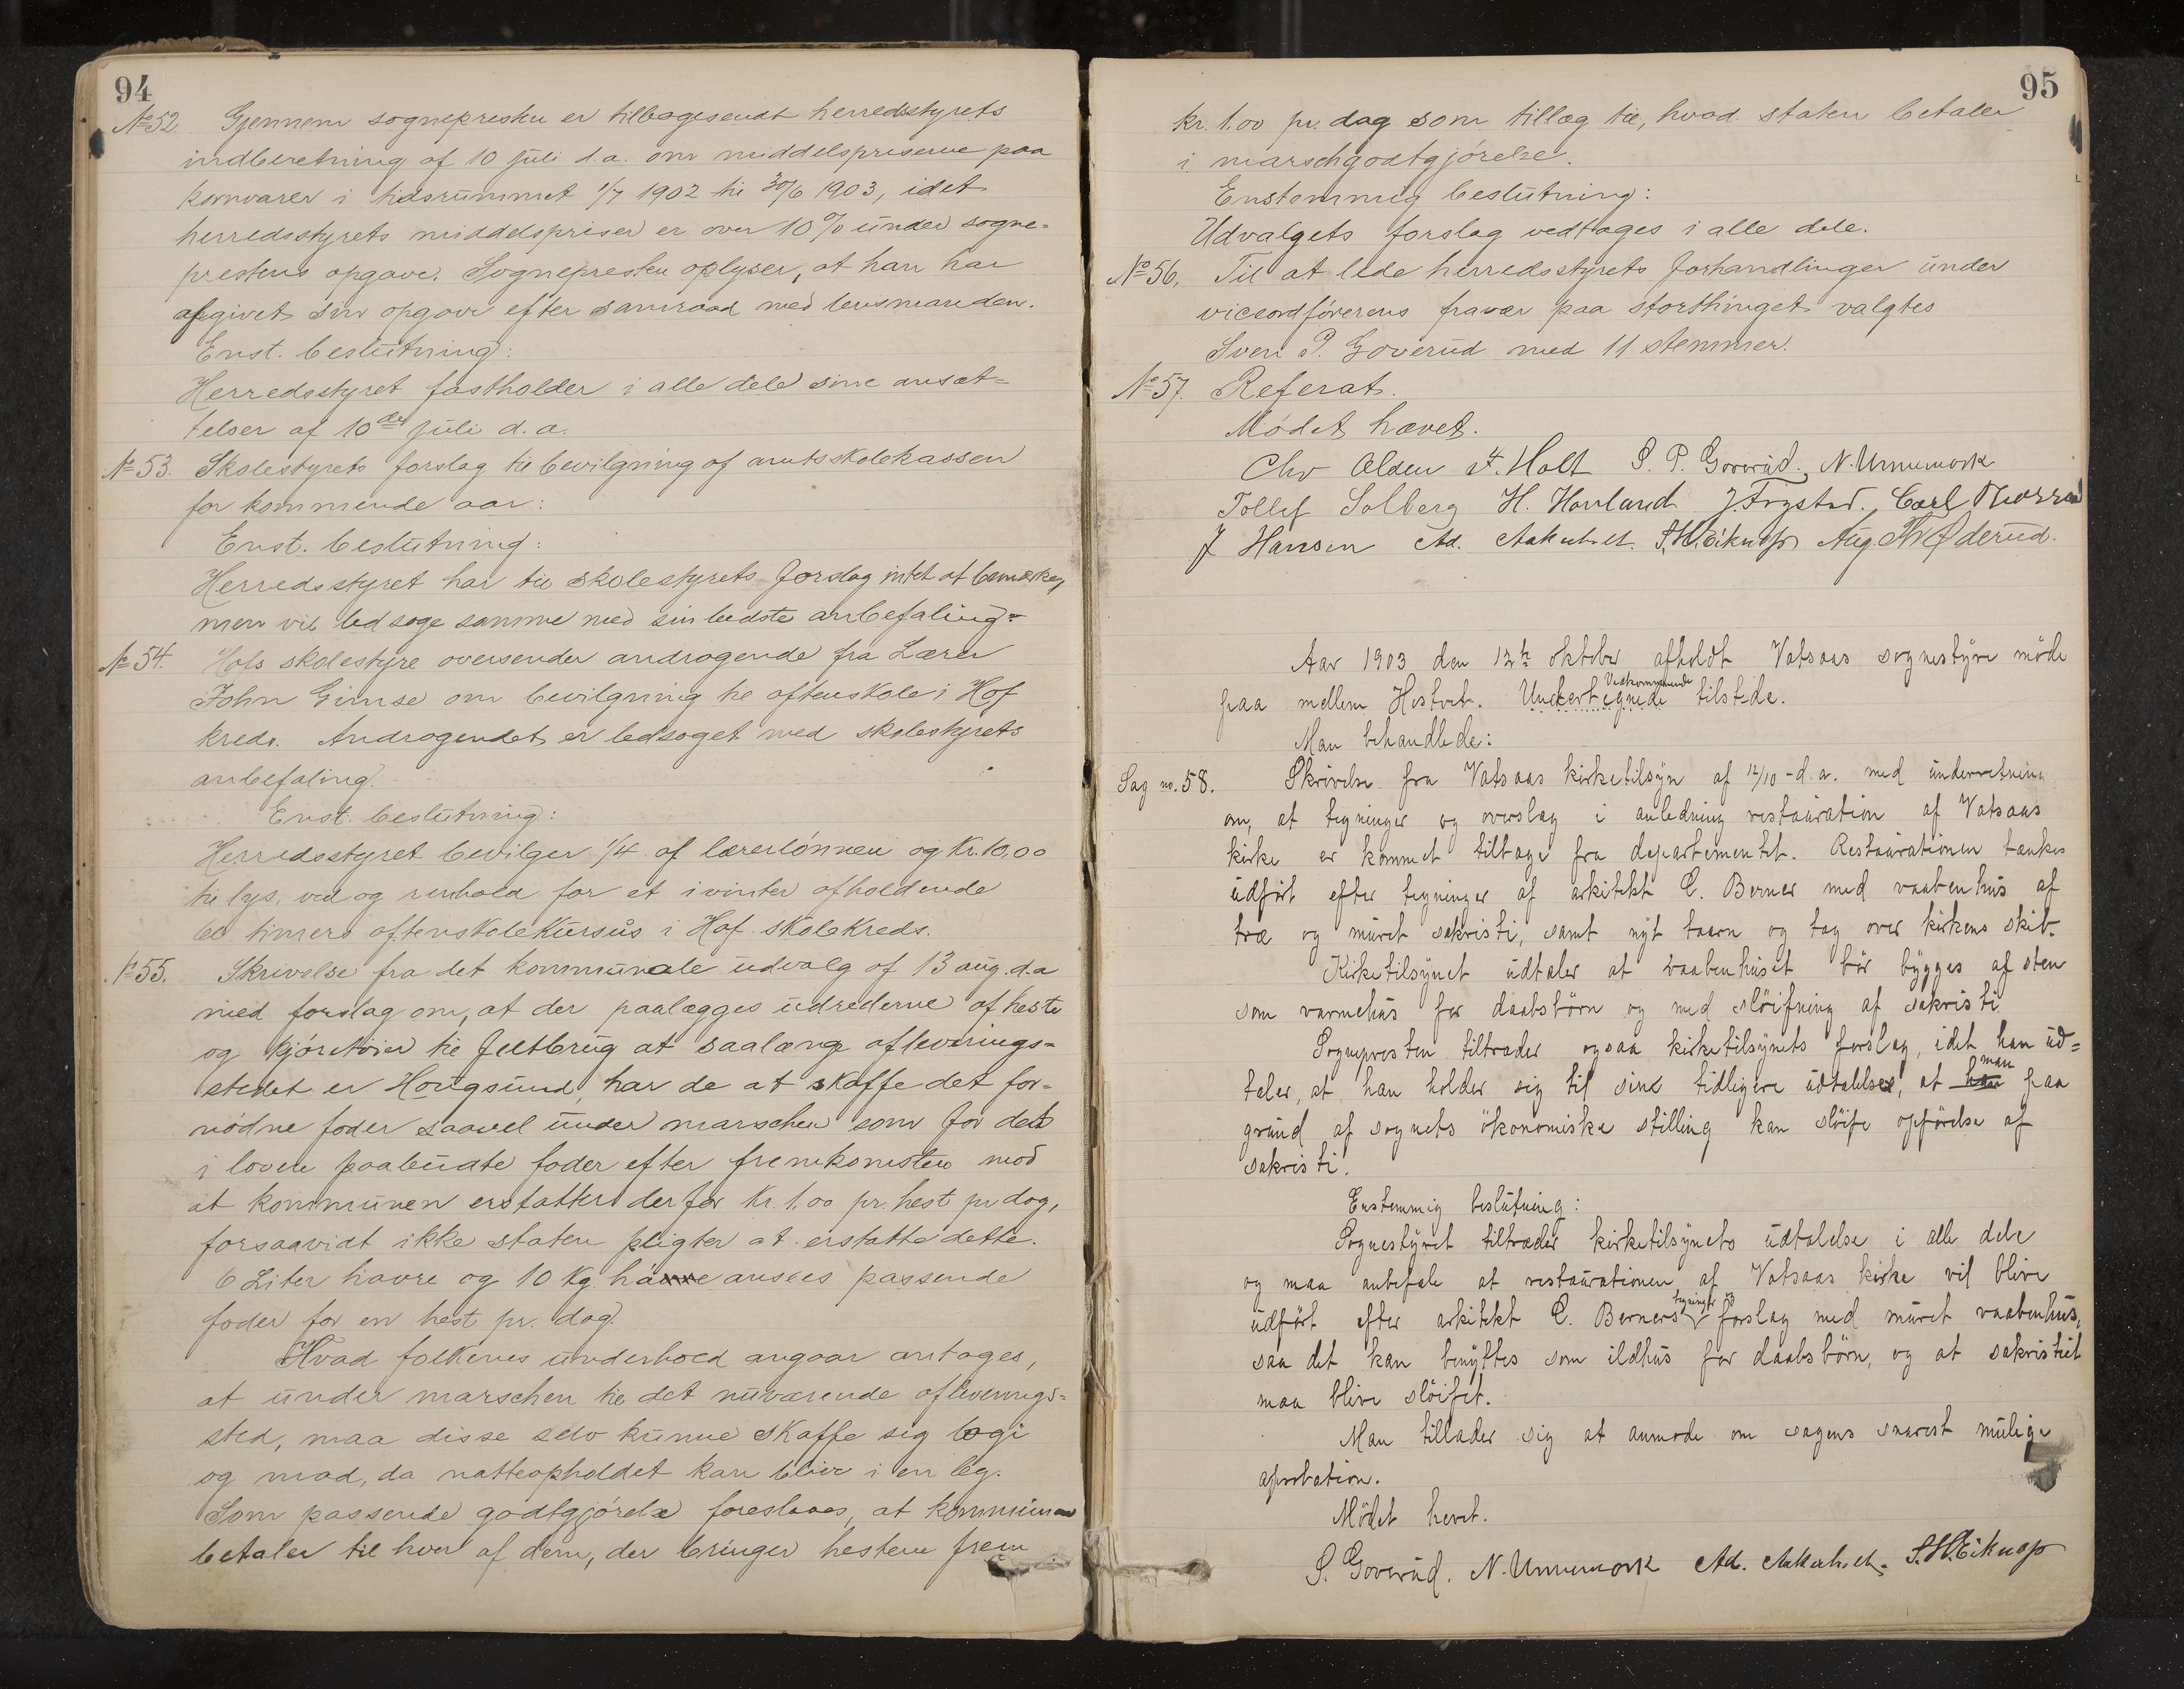 94
No 52. Gjennem sognepresten er tilbagesendt herredsstyrets
indberetning af 10 juli d.a. om middelspriserne paa
kornvarer i tidsrummet 1/7 1902 til 30/6 1903, idet
herredsstyrets middelspriser er over 10% under sogne-
prestens opgave. Sognepresten oplyser, at han har
afgivet sin opgave efter samraad med lensmanden.
Enst. beslutning:
Herredsstyret fastholder i alle dele sine ansæt-
telser af 10de juli d.a.
No 53. Skolestyrets forslag til bevilgning af amtsskolekassen
for kommende aar:
Enst. beslutning:
Herredsstyret har til skolestyrets forslag intet at bemærke,
men vil ledsage samme med sin bedste anbefaling.
No 54. Hofs skolestyre oversender andragende fra Lærer
John Gimse om bevilgning til aftenskole i Hof
kreds. Andragendet er ledsaget med skolestyrets
anbefaling.
Enst. beslutning:
Herredsstyret bevilger 1/4 af lærerlønnen og Kr. 10,00
til lys, ved og renhold for et i vinter afholdende
timers aftenskolekursus i Hof skolekreds.
No 55. Skrivelse fra det kommunale udvalg af 13 aug. d.a
med forslag om, at der paalægges udrederne af heste
og kjøretøier til feltbrug at saalænge afleverings-
stedet er Hougsund, har de at skaffe det for-
nødne foder saavel under marschen som for det
i loven paabudte foder efter fremkomsten mod
at kommunen erstatter derfor Kr. 1.00 pr. hest pr dag,
forsaavidt ikke staten pligter at erstatte dette.
6 Liter havre og 10 Kg. ansees passende
foder for en hest pr. dag.
Hvad folkenes underhold angaar antages,
at under marschen til det nuværende afleverings-
sted, maa disse selv kunne skaffe sig logi
og mad, da natteopholdet kan blive i en leg.
Som passende godtgjørelse foreslaaes, at kommunen
betaler til hver af dem, der bringer hestene frem
95
kr. 1.00 pr. dag som tillæg til, hvad staten betaler
i marschgodtgjørelse.
Enstemmig beslutning:
Udvalgets forslag vedtages i alle dele.
No 56. Til at lede herredsstyrets forhandlinger under
viceordførerens fravær paa storthinget valgtes
Sven P. Goverud med 11 stemmer.
No 57. Referat.
Mødet hævet.
Chr Alden F. Holt S. P. Goverud. N. Unnemork
Tollef Solberg H. Hovland J. Frystad. Carl
J Hansen Ad. Aakerholt. S. H. Eiknap Aug. Th. Øderud.
Aar 1903 den 12te oktober afholdt Vatsaas sognestyre møde
paa mellem Hostvet. Undertegnede Vedkommende tilstede.
Man behandlede:
Sag no. 58. Skrivelse fra Vatsaas kirketilsyn af 12/10 - d.a. med underretning
om, at tegninger og overslag i anledning restauration af Vatsaas
kirke er kommet tilbage fra departementet. Restaurationen tænkes
udført efter tegninger af arkitekt C. Berner med vaabenhus af
træ og muret sakristi, samt nyt taarn og tag over kirkens skib.
Kirketilsynet udtaler at vaabenhuset bør bygges af sten
som varmehus for daabsbørn og med sløifning af sakristi
Sognepresten tiltræder ogsaa kirketilsynets forslag, idet han ud-
taler, at han holder sig til sine tidligere udtalelser, at han man paa
grund af sognets økonomiske stilling kan sløife opførelse af
sakristi.
Enstemmig beslutning:
Sognestyret tiltræder kirketilsynets udtalelse i alle dele
og maa anbefale at restaurationen af Vatsaas kirke vil blive
udført efter arkitekt C. Berners tegninger og forslag med muret vaabenhus,
saa det kan benyttes som ildhus for daabsbørn, og at sakristiet
maa blive sløifet.
Man tillader sig at anmode om sagens snarest mulige
aprobation.
Mødet hevet.
S. Goverud. N. Unnemork Ad. Aakerholt. S. H. Eiknap